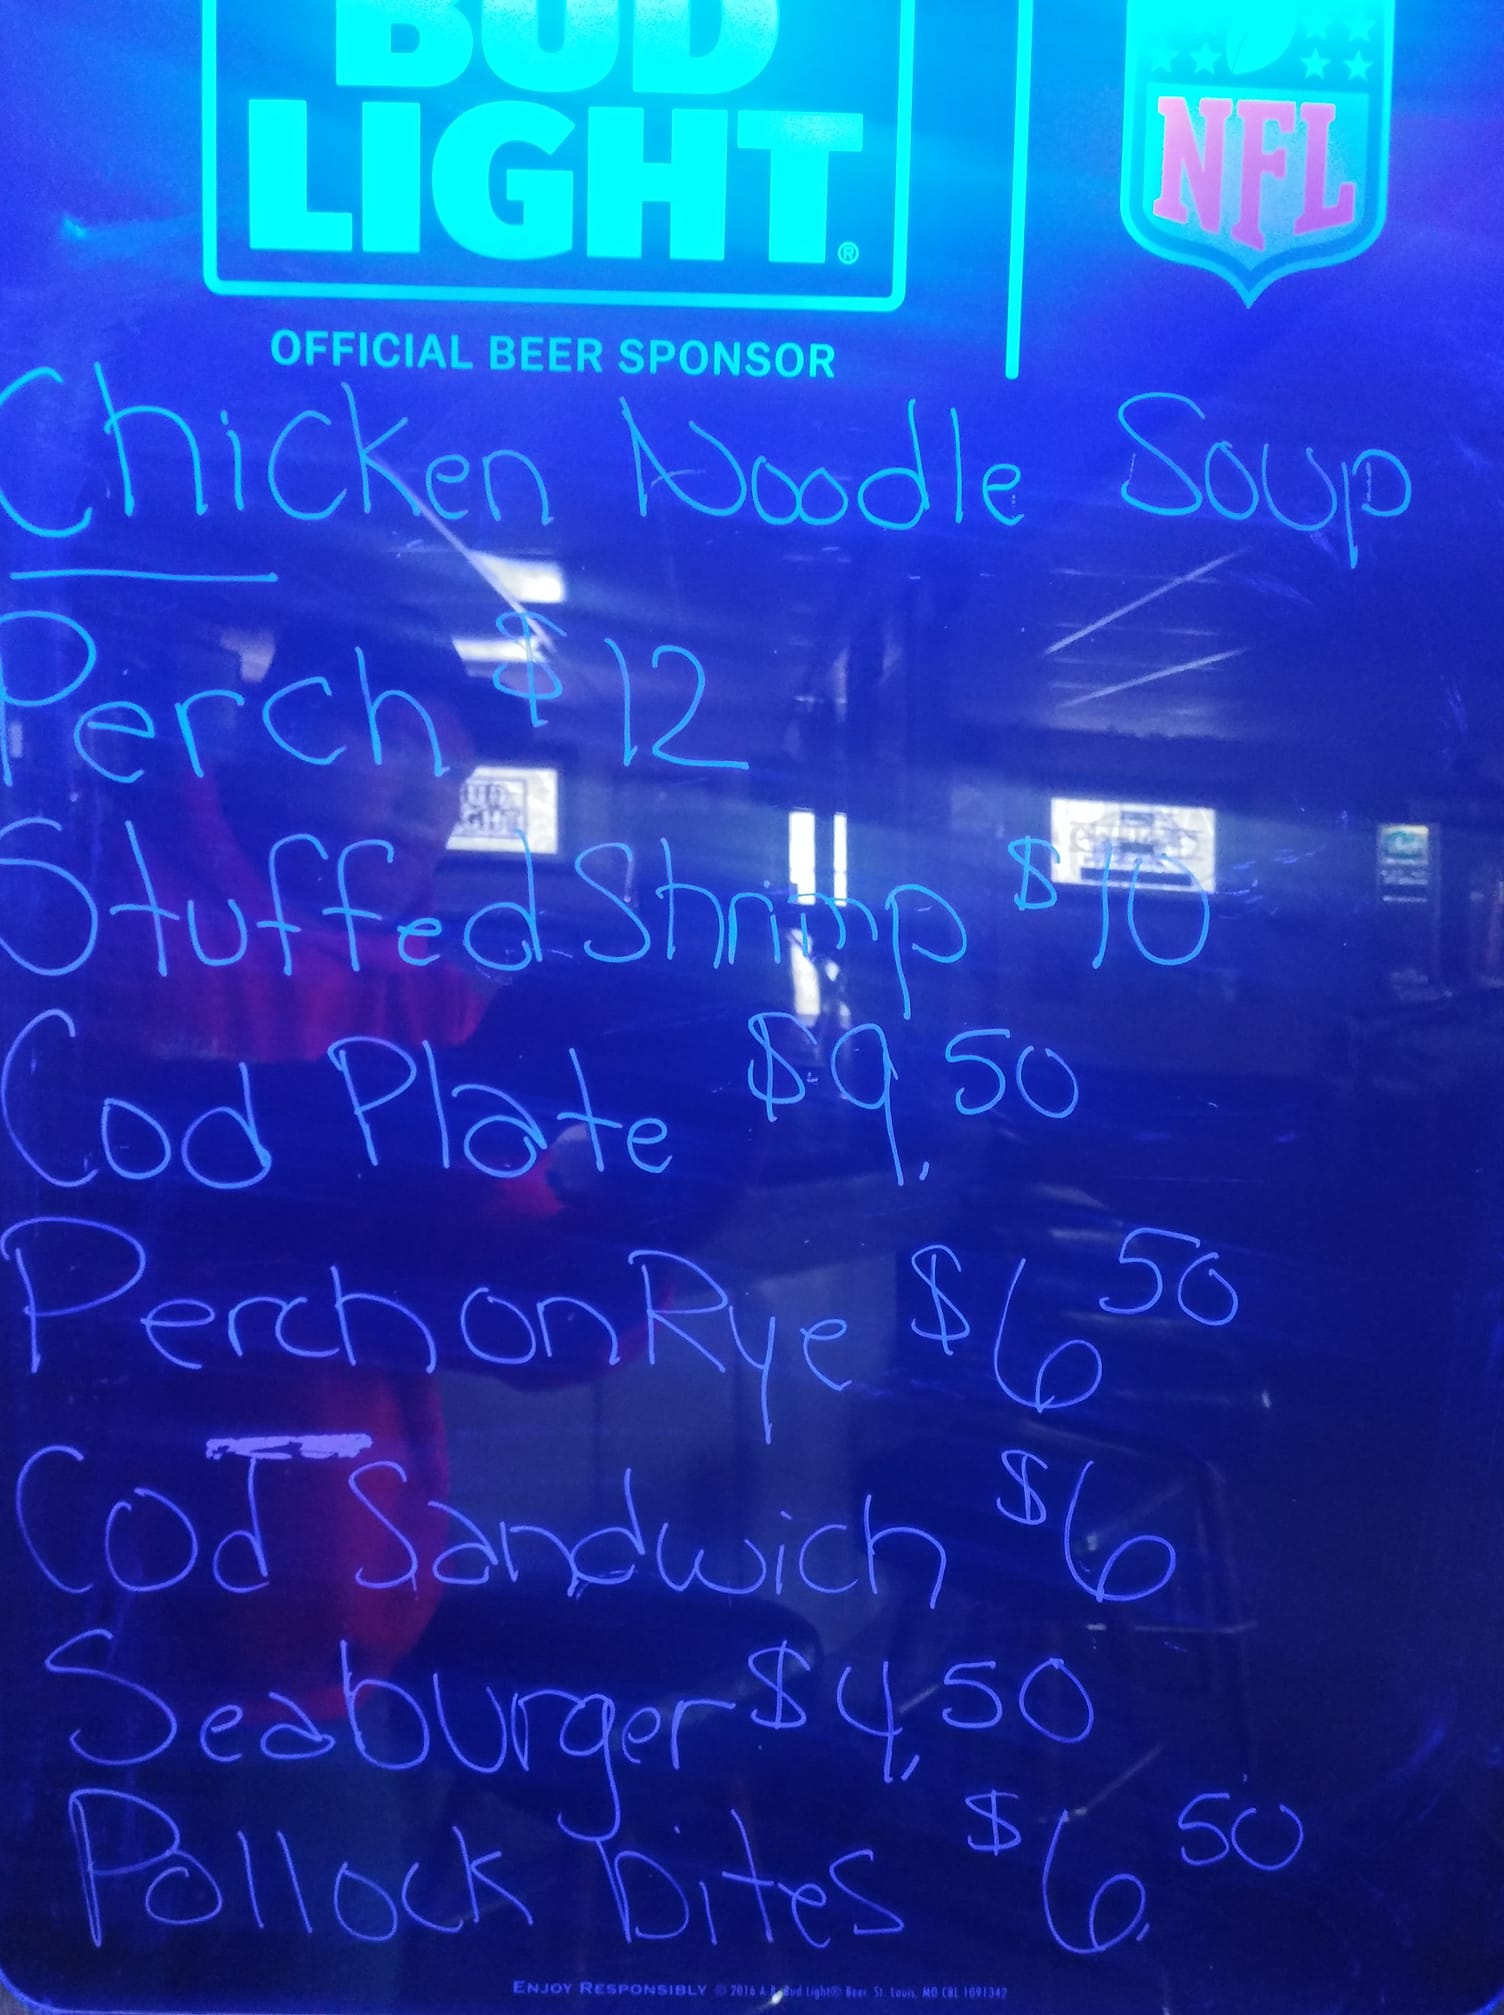 BUD
LIGHT®
NFL
OFFICIAL BEER SPONSOR
Chicken Noodle Soup
Perch $12
Stuffed Shrimp $10
Cod Plate $9.50
Perch on Rye $6.50
Cod Sandwich $6
Seaburger $4.50
Pollock bites $6.50
ENJOY RESPONSIBLY © 2016 A.B. Bud Light® Beer, St. Louis, MO CBL 1091342